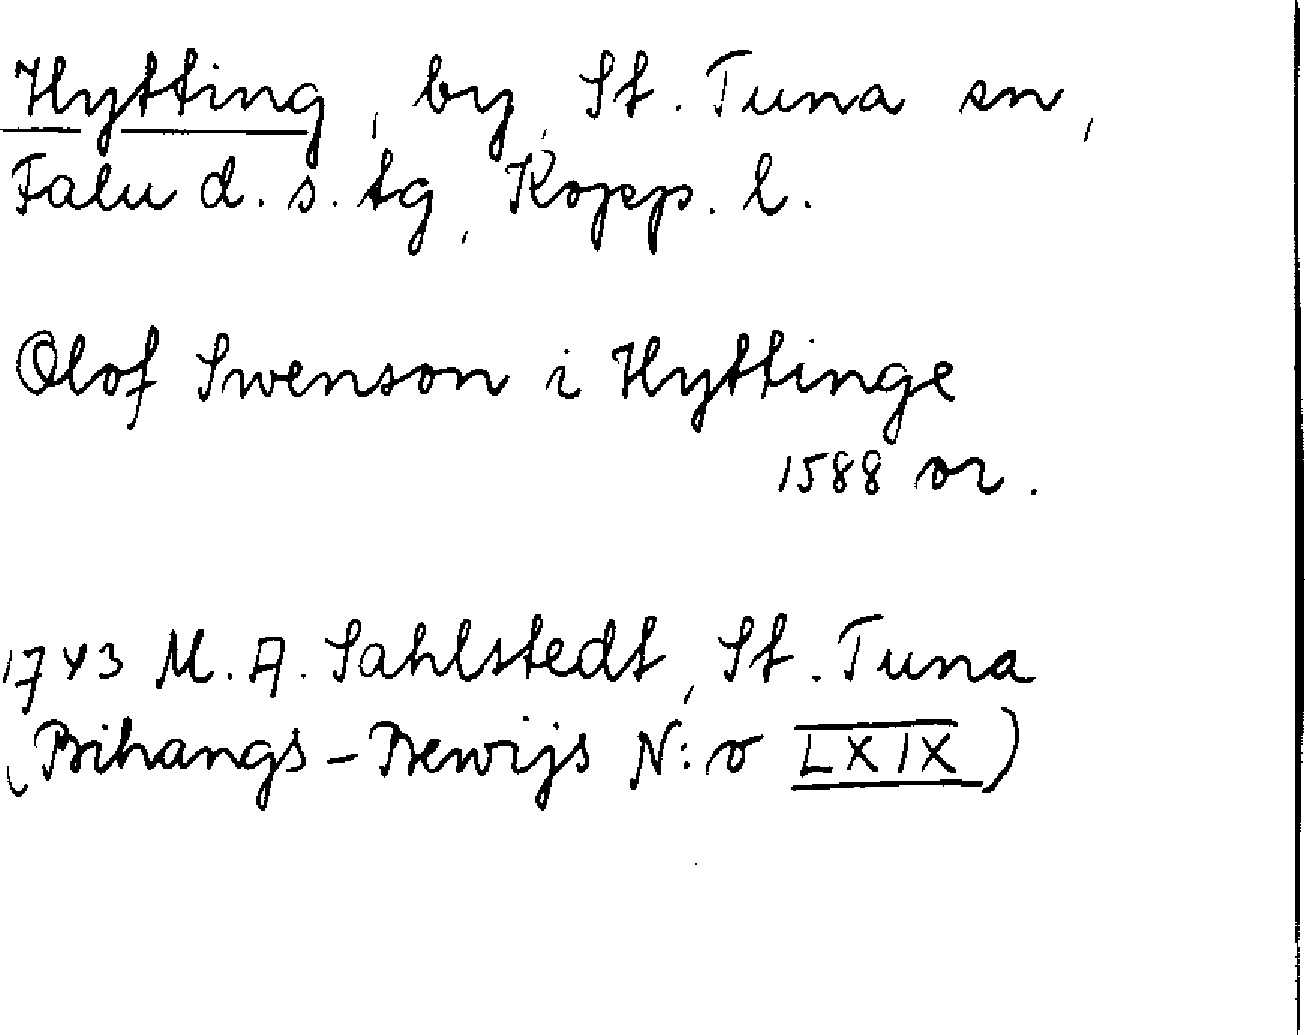 Hytting, by, St. Tuna sn,
Falu d. s. tg, Kopp. l.
Olof Swenson i Hyttinge
1588 or.
1743 M. A. Sahlstedt, St. Tuna
(Bihangs-Bewijs N:o LXIX)